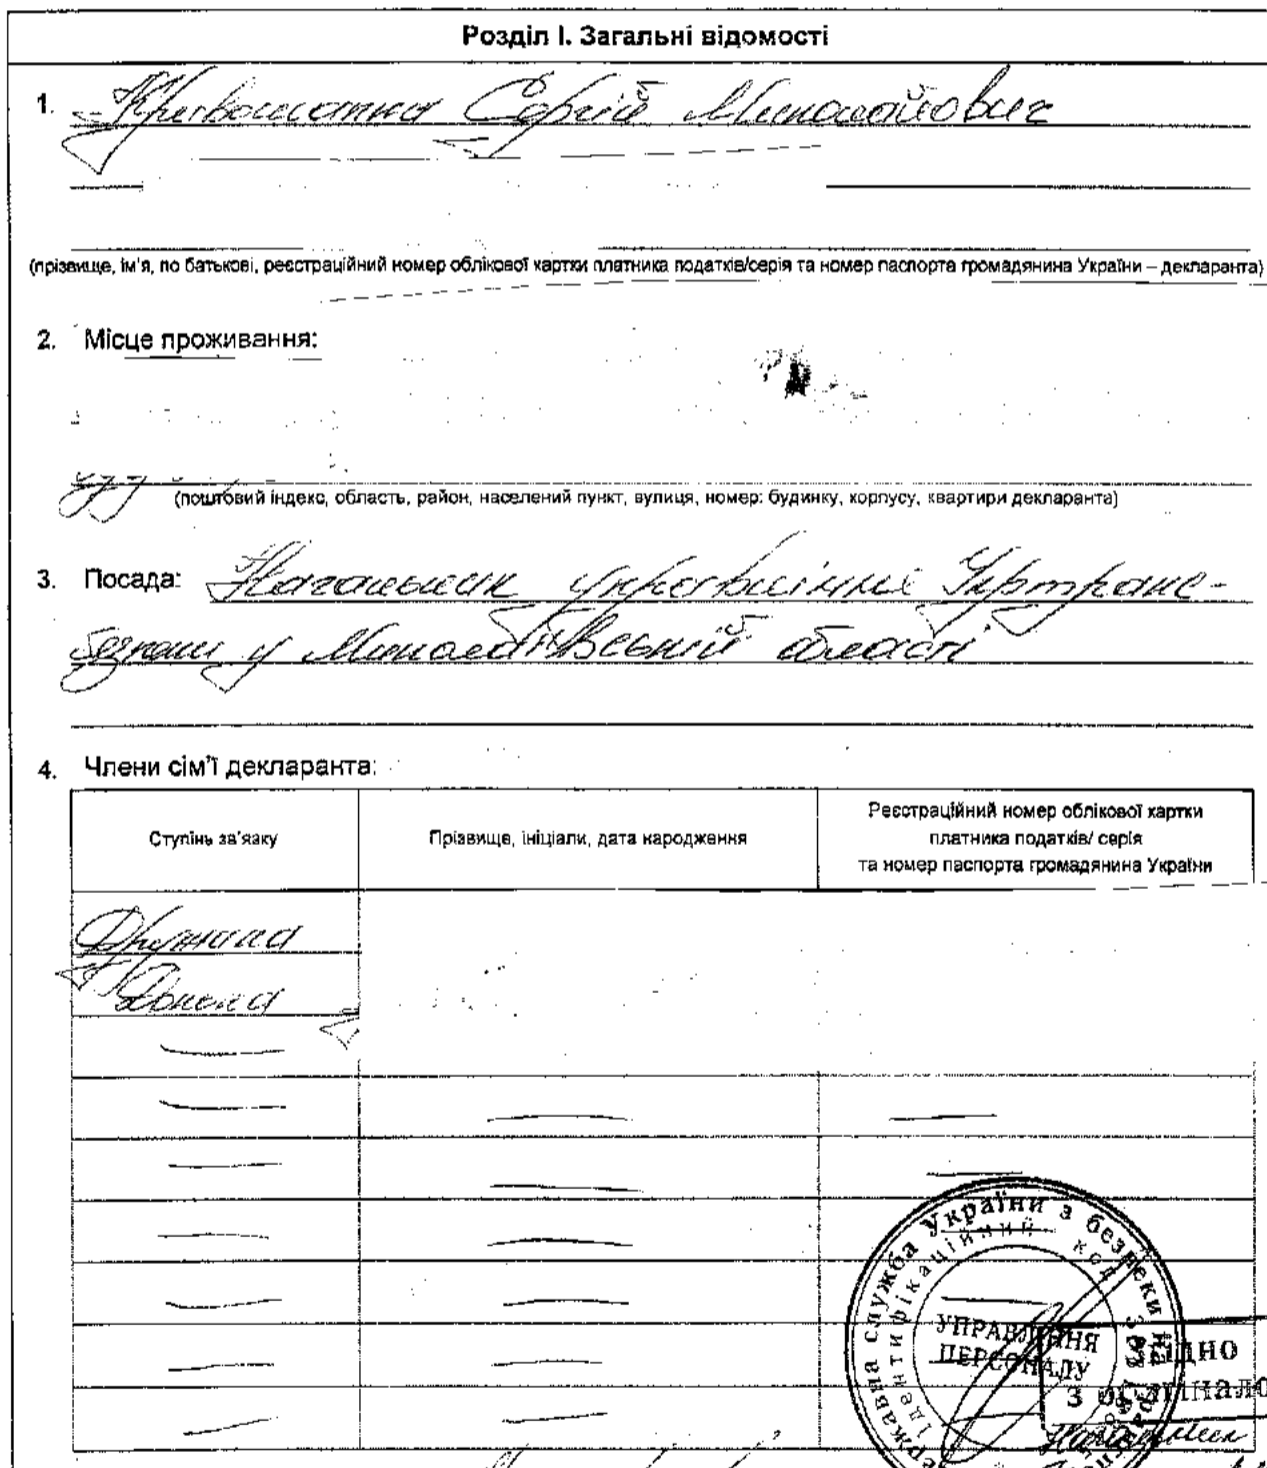 Розділ І. Загальні відомості
1. Кривошапка Сергій Миколайович
(прізвище, ім'я, по батькові, реєстраційний номер облікової картки платника податків/серія та номер паспорта громадянина України – декларанта)
2. Місце проживання:
(поштовий індекс, область, район, населений пункт, вулиця, номер: будинку, корпусу, квартири декларанта)
3. Посада: Начальник управління Укртранс-
безпеки у Миколаївській області
4. Члени сім'ї декларанта:
Ступінь зв'язку
Прізвище, ініціали, дата народження
Реєстраційний номер облікової картки
платника податків/ серія
та номер паспорта громадянина України
Дружина
Донька
служба України з безпеки на
ідентифікаційний код
УПРАВЛІННЯ
ПЕРСОНАЛУ
Згідно
з